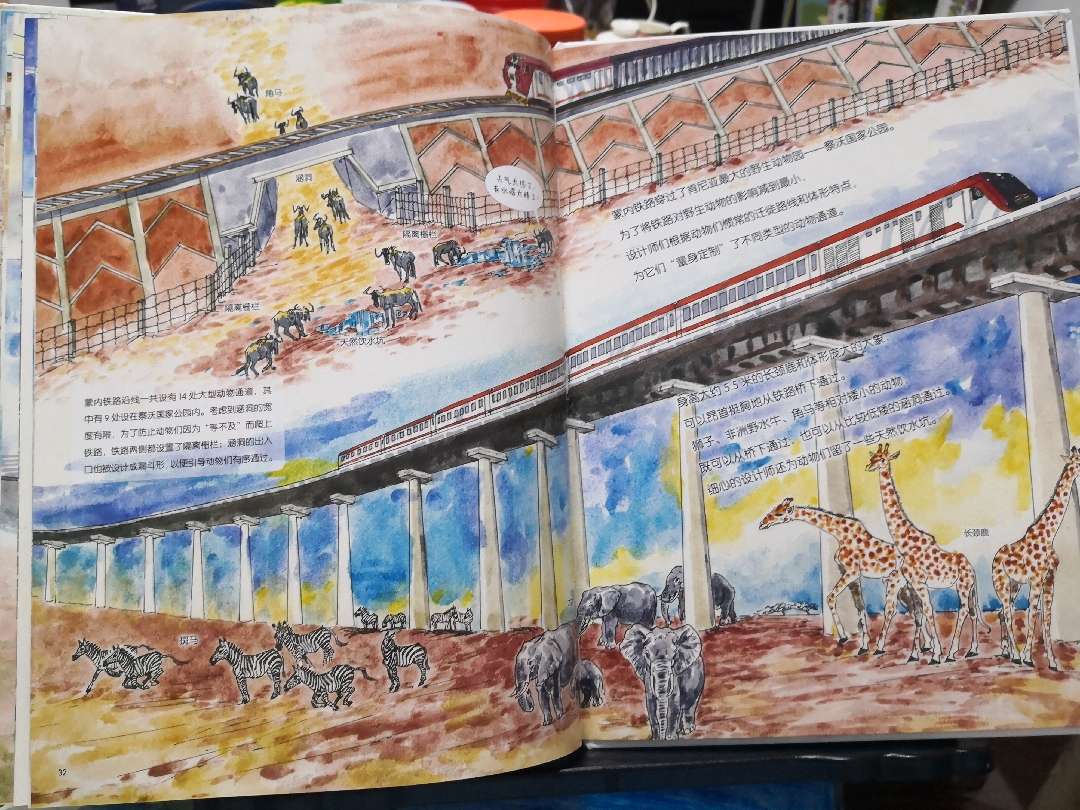 角马
涵洞
天气太热了，
有水喝太棒了！
隔离栅栏
隔离栅栏
天然饮水坑
蒙内铁路沿线一共设有14处大型动物通道，其
中有9处设在察沃国家公园内。考虑到涵洞的宽
度有限，为了防止动物们因为“等不及”而爬上
铁路，铁路两侧都设置了隔离栅栏；涵洞的出入
口也被设计成漏斗形，以便引导动物们有序通过。
斑马
32
蒙内铁路穿过了肯尼亚最大的野生动物园——察沃国家公园。
为了将铁路对野生动物的影响减到最小，
设计师们根据动物们惯常的迁徙路线和体形特点，
为它们“量身定制”了不同类型的动物通道。
身高大约5.5米的长颈鹿和体形庞大的大象，
可以昂首挺胸地从铁路桥下通过。
狮子、非洲野水牛、角马等相对矮小的动物
既可以从桥下通过，也可以从比较低矮的涵洞通过。
细心的设计师还为动物们留了一些天然饮水坑。
长颈鹿